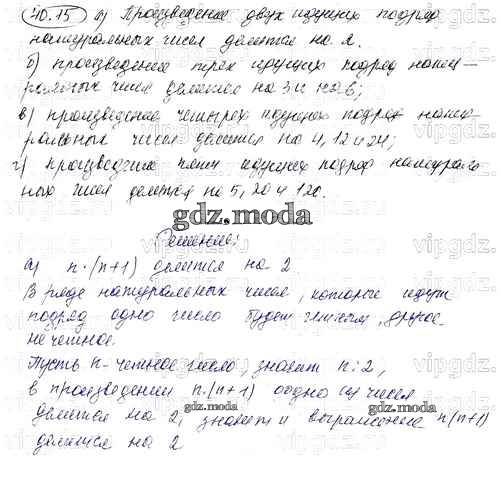 40.15 а) Произведение двух идущих подряд
натуральных чисел делится на 2.
б) произведение трех идущих подряд нату-
ральных чисел делится на 3 и на 6;
в) произведение четырех идущих подряд нату-
ральных чисел делится на 4, 12 и 24;
г) произведение пяти идущих подряд натураль-
ных чисел делится на 5, 20 и 120.
gdz.moda
Решение:
а) n·(n+1) делится на 2.
В ряде натуральных чисел, которые идут
подряд одно число будет четным, другое
нечетное.
Пусть n - четное число, значит n : 2,
в произведении n·(n+1) одно из чисел
делится на 2, значит и выражение n(n+1)
gdz.moda
делится на 2